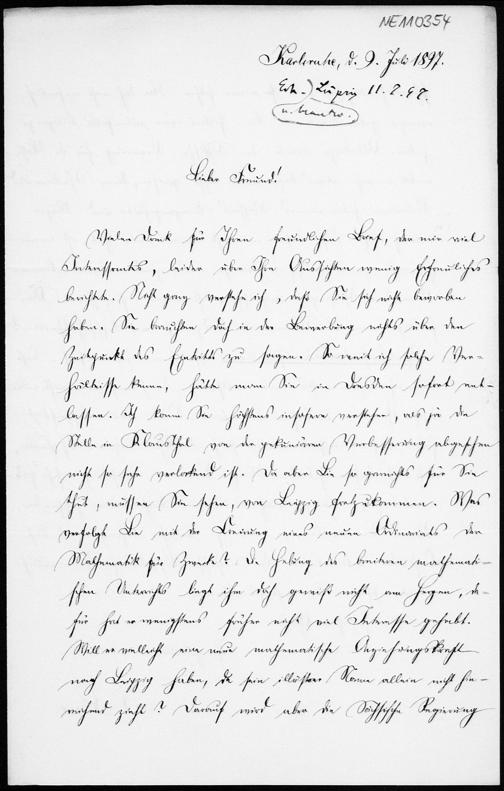 NE110354
Karlsruhe, d. 9. Juli 1897.
Erh. Leipzig 11. 7. 97.
u. beantw.
Lieber Freund!
Vielen Dank für Ihren freundlichen Brief, der mir viel
Interessantes, leider über Ihre Aussichten wenig Erfreuliches
berichtete. Nicht ganz verstehe ich, daß Sie sich nicht beworben
haben. Sie brauchten doch in der Bewerbung nichts über den
Zeitpunkt des Eintritts zu sagen. So weit ich solche Ver-
hältnisse kenne, hätte man Sie in Dresden sofort ent-
lassen. Ich kann Sie höchstens insofern verstehen, als ja die
Stelle in Klausthal von der pekuniären Verbesserung abgesehen
nicht so sehr verlockend ist. Da aber Lie so garnichts für Sie
thut, müssen Sie sehen, von Leipzig fortzukommen. Was
verfolgt Lie mit der Creirung eines neuen Ordinariats der
Mathematik für Zwecke? Die Hebung des breiteren mathemati-
schen Unterrichts liegt ihm doch gewiß nicht am Herzen, da-
für hat er wenigstens früher nicht viel Interesse gehabt.
Will er vielleicht eine neue mathematische Anziehungskraft
nach Leipzig haben, da sein illüstrer Name allein nicht hin-
reichend zieht? Darauf wird aber die Sächsische Regierung